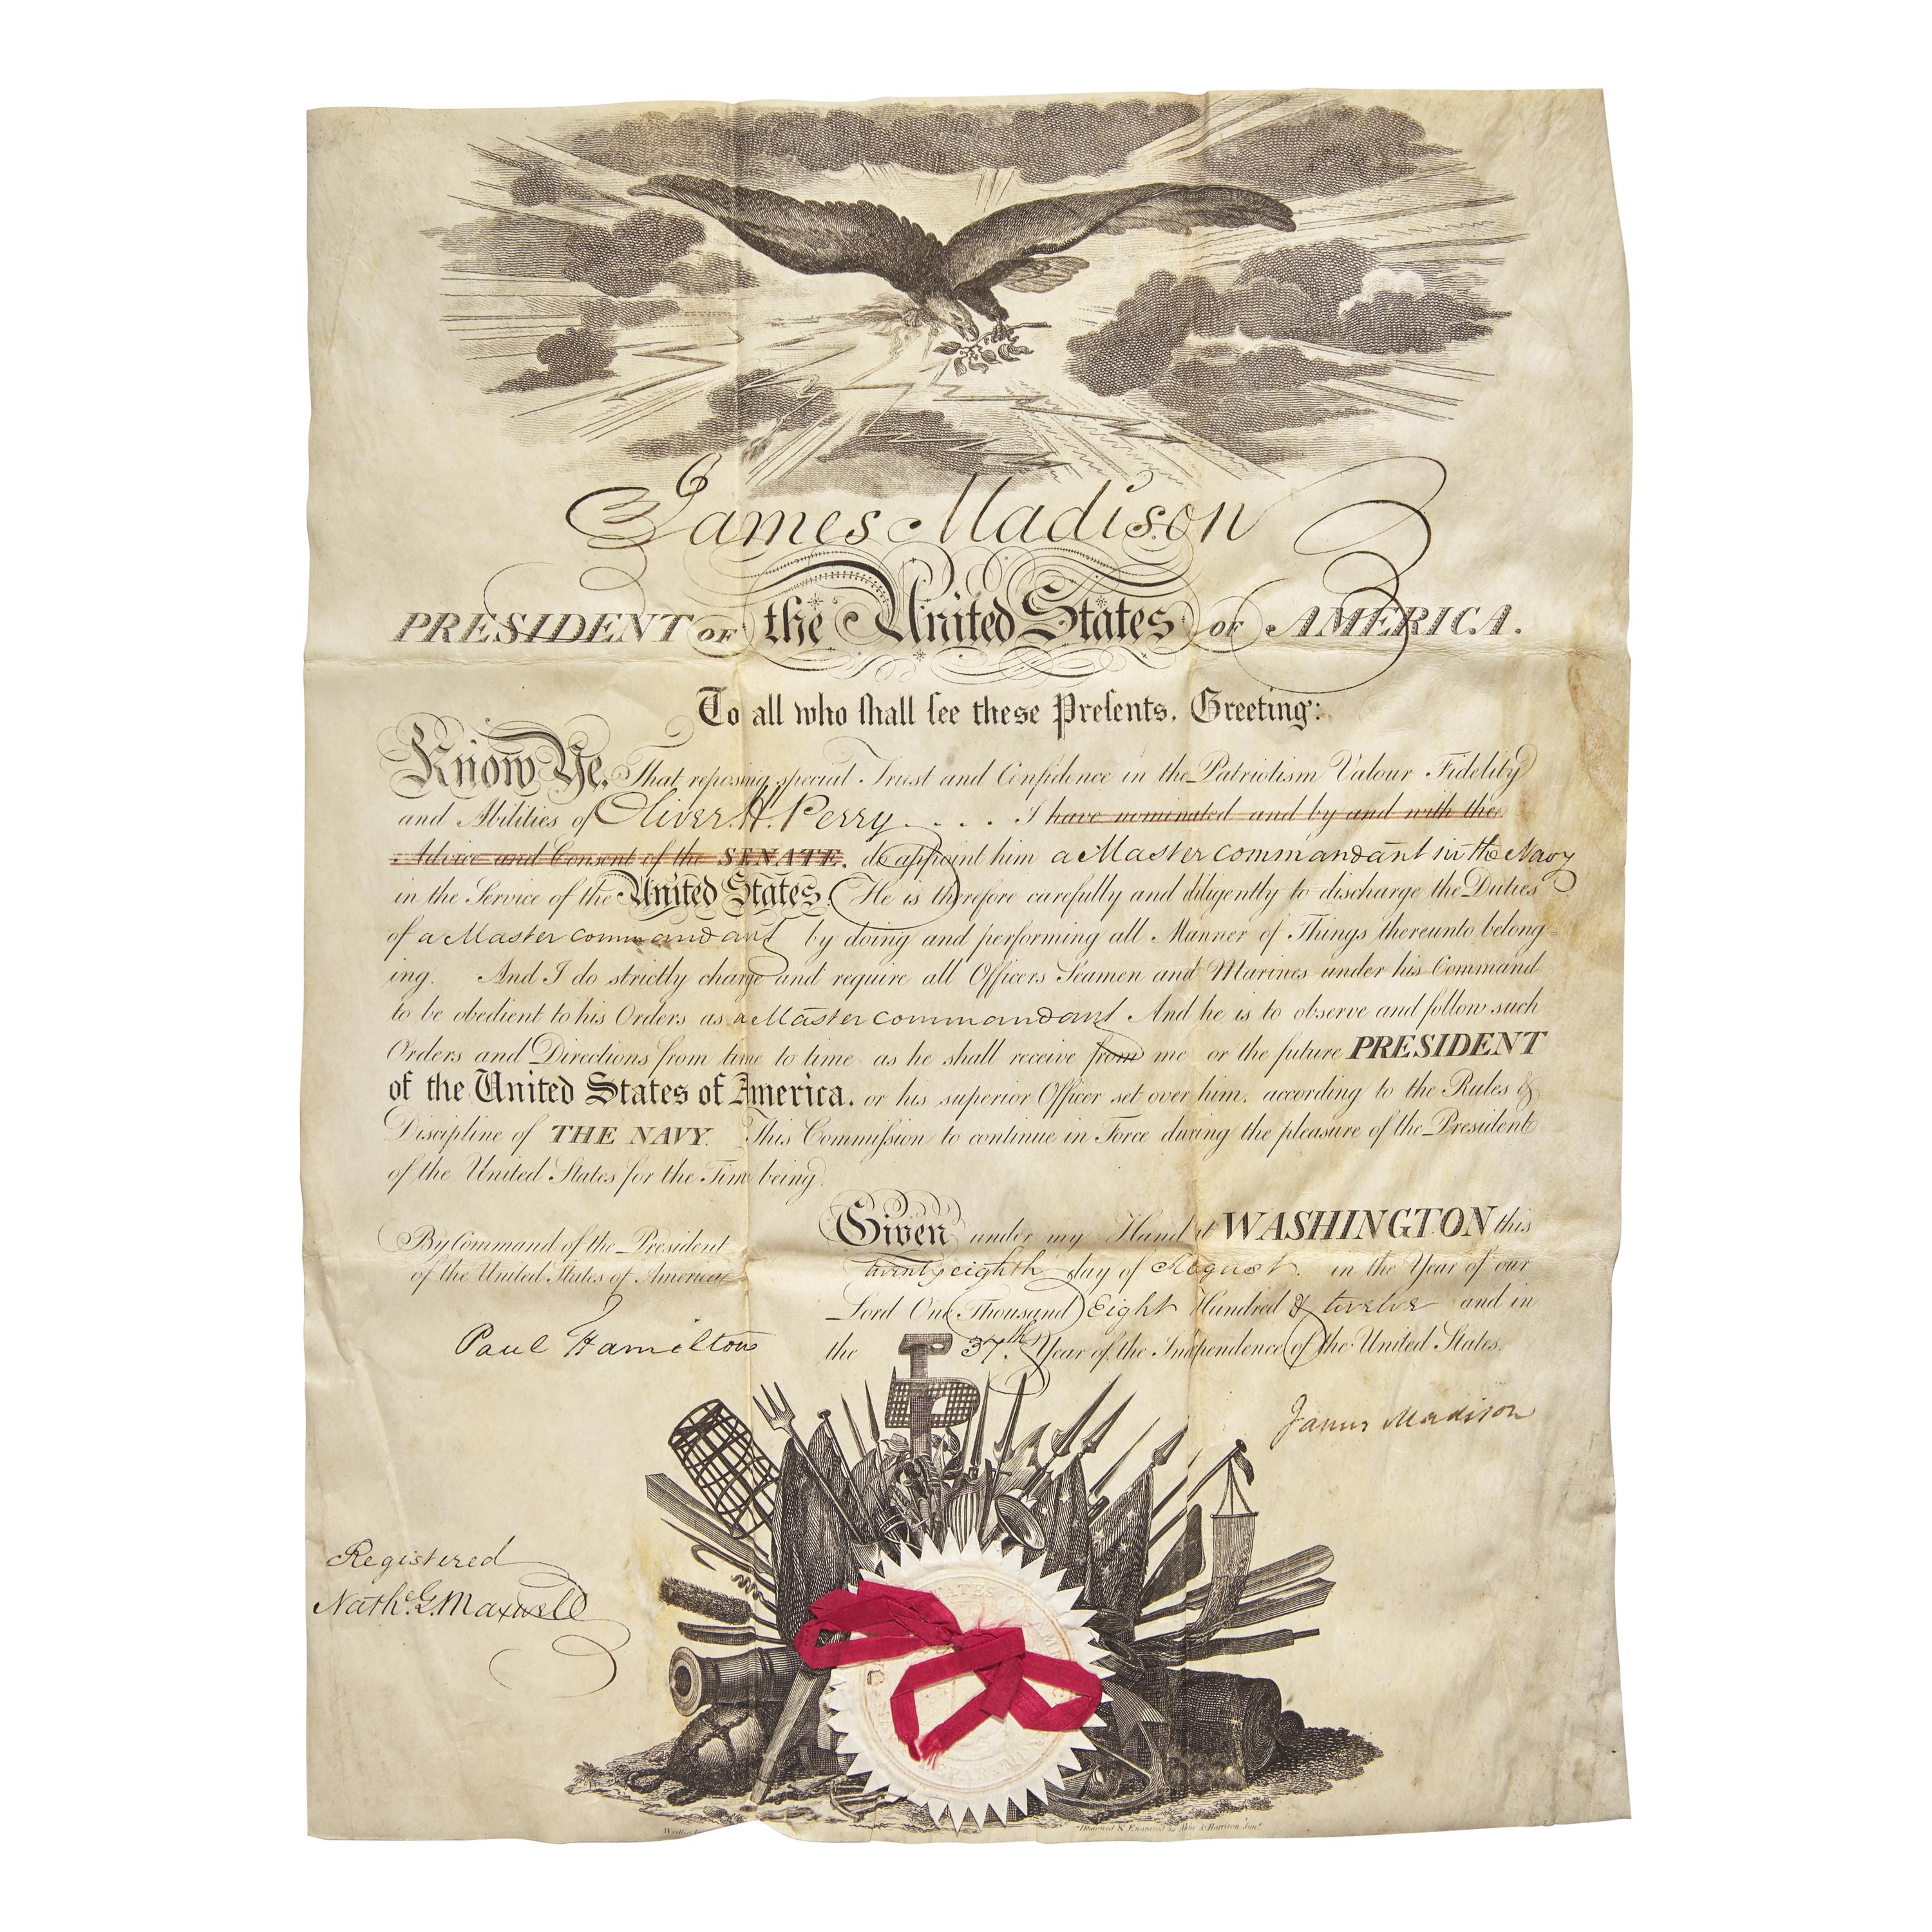 James Madison
PRESIDENT OF the United States OF AMERICA.
To all who ſhall ſee these Preſents, Greeting:
Know Ye, That reposing special Trust and Confidence in the Patriotism Valour Fidelity
and Abilities of Oliver. H. Perry . . . . I have nominated and by and with the
Advice and Consent of the SENATE, do appoint him a Master commandant in the Navy
in the Service of the United States. He is therefore carefully and diligently to discharge the Duties
of a Master commandant by doing and performing all Manner of Things thereunto belong-
ing. And I do strictly charge and require all Officers Seamen and Marines under his Command
to be obedient to his Orders as a Master commandant And he is to observe and follow such
Orders and Directions from time to time as he shall receive from me or the future PRESIDENT
of the United States of America, or his superior Officer set over him, according to the Rules &
Discipline of THE NAVY. This Commiſsion to continue in Force during the pleasure of the President
of the United States for the Time being.
Given under my Hand at WASHINGTON this
twenty eighth day of August. in the Year of our
Lord One Thousand Eight Hundred & twelve and in
the 37th. Year of the Independence of the United States.
By Command of the President
of the United States of America
Paul Hamilton
James Madison
Registered
Nathl. G. Maxwell
STATES OF AMERICA
Engraved by Akin & Harrison Junr.